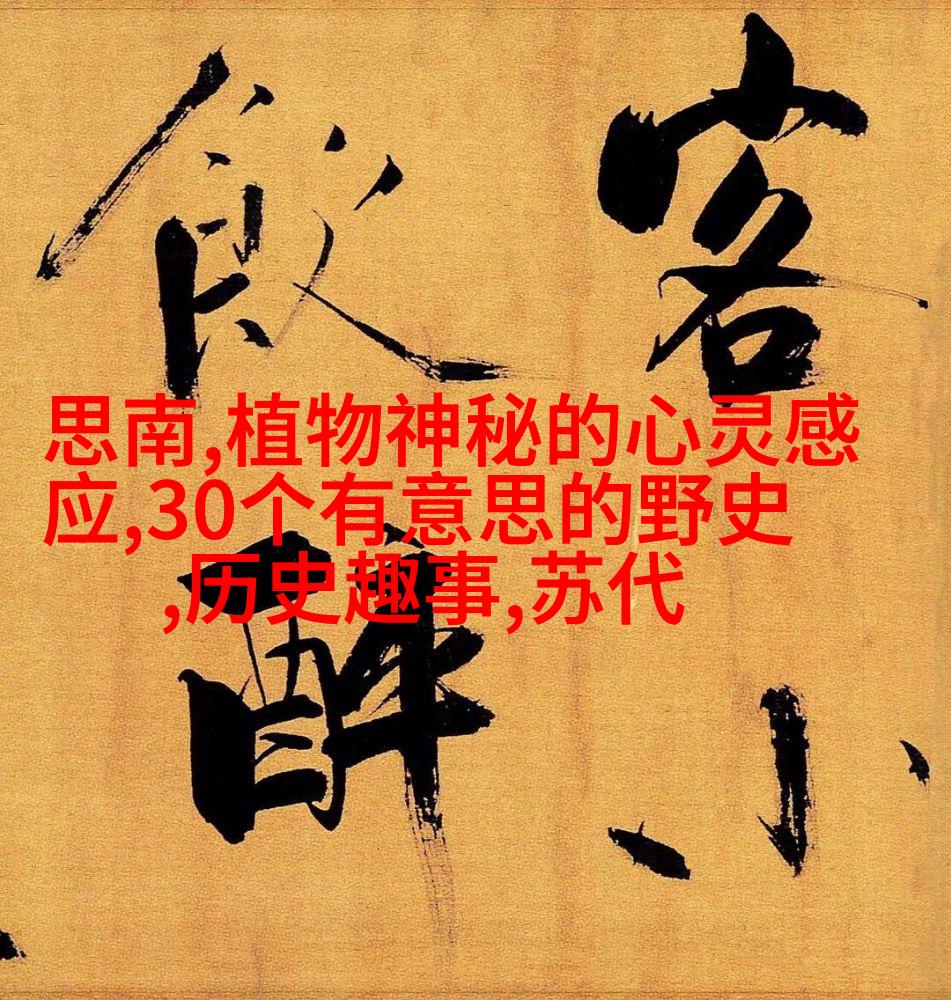 客小
飲醉
思南,植物神秘的心灵感
应,30个有意思的野史
,历史趣事,苏代